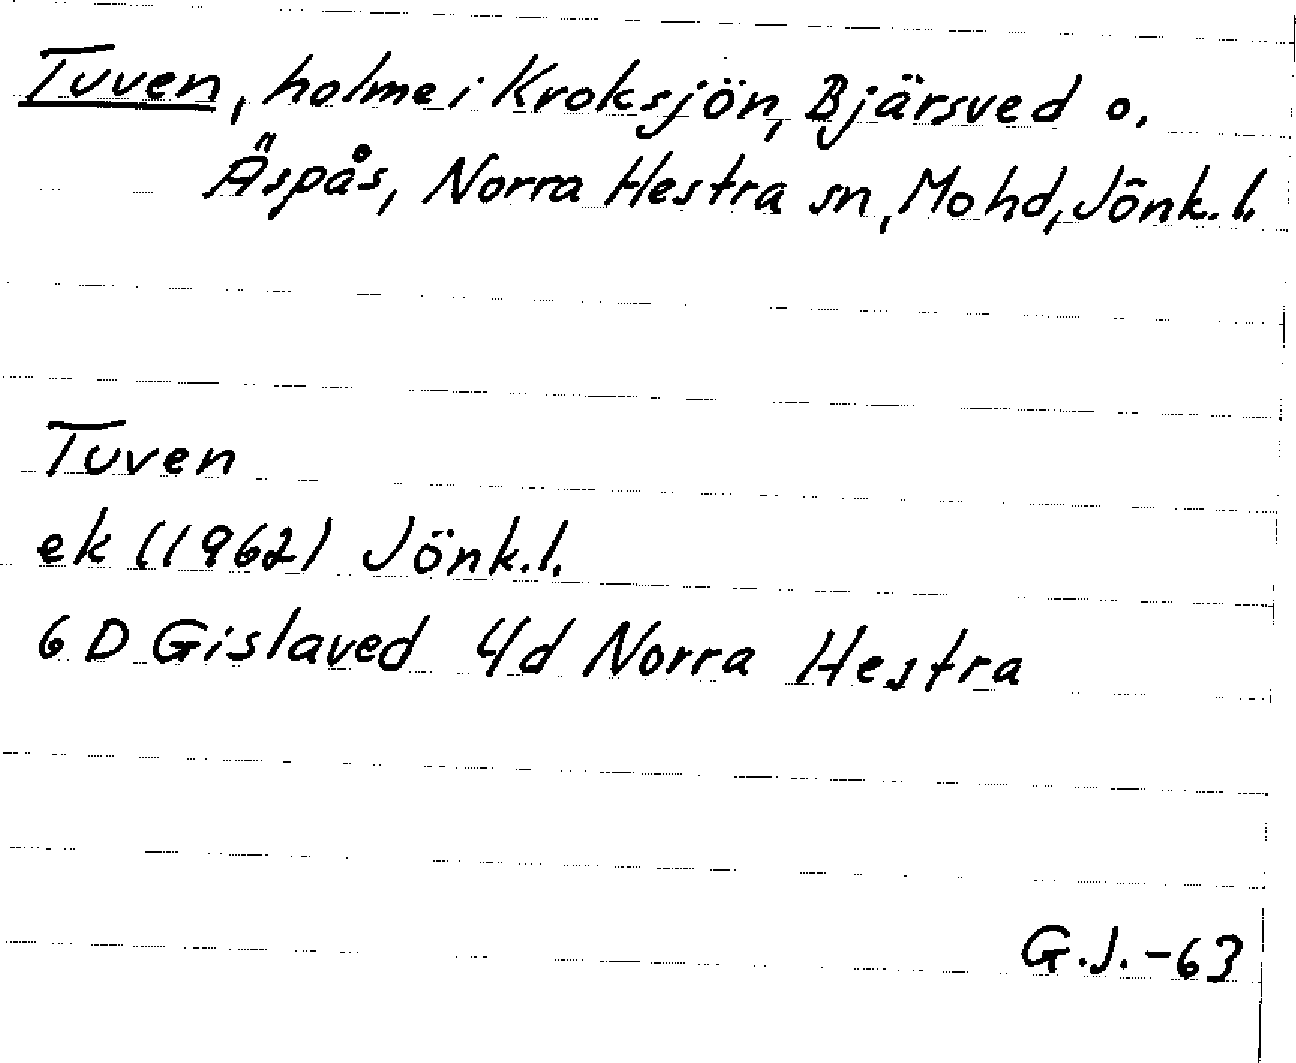 Tuven, holme i Kroksjön, Bjärsved o.
Äspås, Norra Hestra sn, Mohd, Jönk.l.
Tuven
ek (1962) Jönk.l.
6 D Gislaved 4d Norra Hestra
G.J. -63